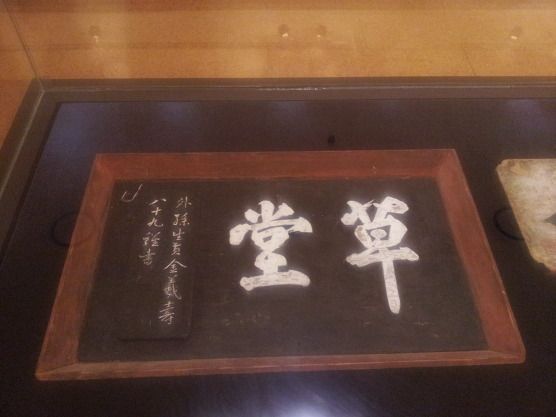 草堂
外孫生員金羲壽
八十九 書